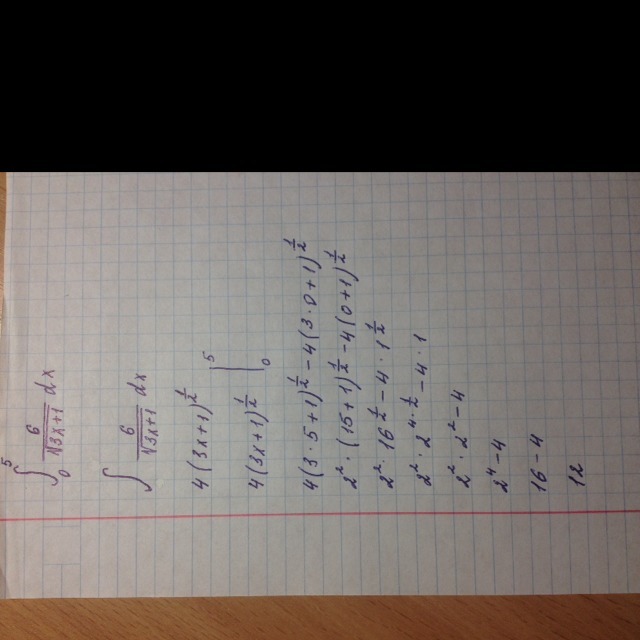 ∫₀⁵ 6/√(3x+1) dx
∫ 6/√(3x+1) dx
4(3x+1)^(1/2)
4(3x+1)^(1/2) |₀⁵
4(3·5+1)^(1/2) - 4(3·0+1)^(1/2)
2²·(15+1)^(1/2) - 4(0+1)^(1/2)
2²·16^(1/2) - 4·1^(1/2)
2²·2^(4·1/2) - 4·1
2²·2² - 4
2⁴ - 4
16 - 4
12